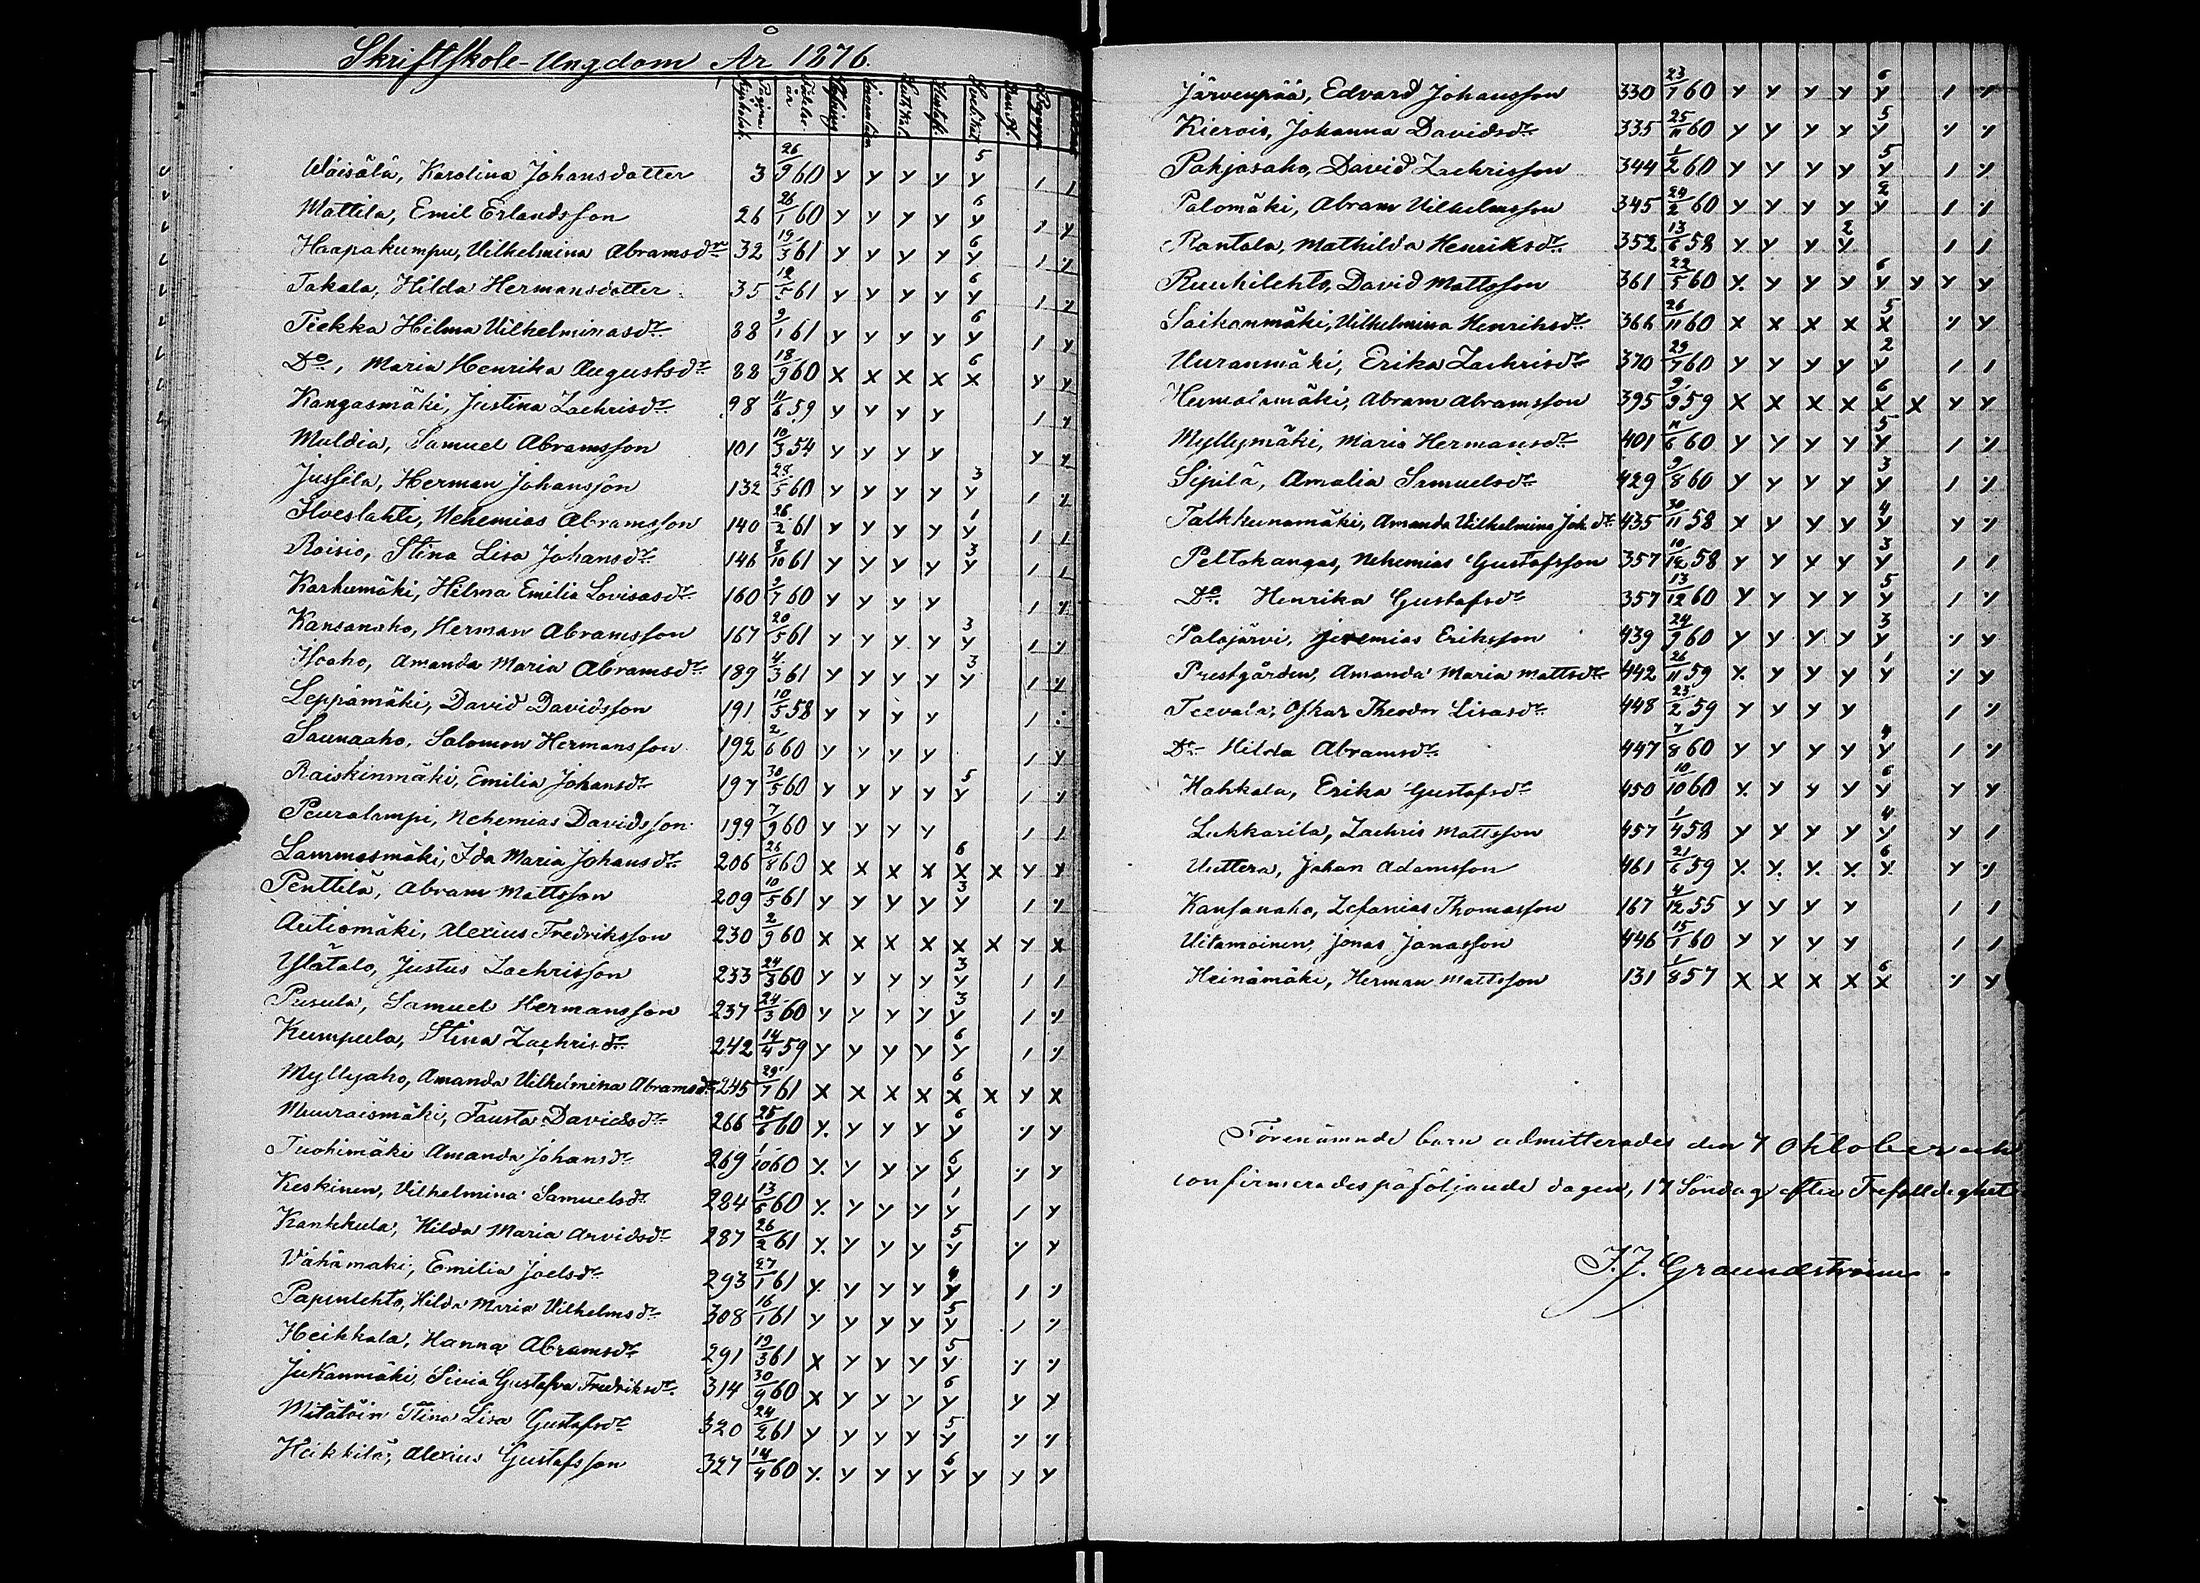 Skriftskole-Ungdom År 1876.
Wäisälä, Karolina Johansdotter 3 26/9 60 y y y y y 5 1 1
Mattila, Emil Erlandsson 26 26/1 60 y y y y y 6 1 y
Haapakumpu, Vilhelmina Abramsdr 32 19/3 61 y y y y y 6 1 y
Takala, Hilda Hermansdotter 35 12/5 61 y y y y y 6 1 y
Tiekka Hilma Vilhelminasdr 88 9/1 61 y y y y y 6 1 y
Do, Maria Henrika Augustsdr 88 18/9 60 x x x x x 6 y y
Kangasmäki, Justina Zachrisdr 98 11/6 59 y y y y 1 y
Muldia, Samuel Abramsson 101 10/3 54 y y y y y y
Jussila, Herman Johansson 132 28/5 60 y y y y y 3 1 y
Hoeslahti, Nehemias Abramsson 140 26/2 61 y y y y y 1 1 1
Roisio, Stina Lisa Johansdr 146 8/10 61 y y y y y 3 1 1
Karhumäki, Hilma Emilia Lovisasdr 160 9/7 60 y y y y 1 y
Kansanaho, Herman Abramsson 167 20/5 61 y y y y y 3 1 y
Isoaho, Amanda Maria Abramsdr 189 4/3 61 y y y y y 3 1 y
Leppämäki, David Davidsson 191 10/5 58 y y y y 1
Saunaaho, Salomon Hermansson 192 2/6 60 y y y y 1 y
Raiskinmäki, Emilia Johansdr 197 30/5 60 y y y y y 5 1 y
Peuralampi, Nehemias Davidsson 199 7/9 60 y y y y 1 1
Lammasmäki, Ida Maria Johansdr 206 26/8 60 x x x x x 6 x y y
Penttilä, Abram Mattsson 209 10/5 61 y y y y y 3 1 y
Autiomäki, Alexius Fredriksson 230 2/9 60 x x x x x x y x
Ylätalo, Justus Zachrisson 233 24/3 60 y y y y y 3 1 1
Pusula, Samuel Hermansson 237 24/3 60 y y y y y 3 1 y
Kumpula, Stina Zachrisdr 242 14/4 59 y y y y y 6 1 y
Myllyaho, Amanda Vilhelmina Abramsdr 245 29/1 61 x x x x x 6 x y x
Muuraismäki, Fausta Davidsdr 266 25/6 60 y y y y y 6 y y
Tuohimäki Amanda Johansdr 269 1/10 60 y y y y y 6 y y
Keskinen, Vilhelmina Samuelsdr 284 13/6 60 y y y y y 1 1 y
Kankkula, Hilda Maria Arvidsdr 287 26/2 61 y y y y y 5 y y
Vähämäki, Emilia Joelsdr 293 27/1 61 y y y y y 4 1 y
Papinlehto, Hilda Maria Vilhelmsdr 308 16/1 61 y y y y y 5 1 y
Heikkala, Hanna Abramsdr 291 19/3 61 x y y y y 5 y y
Jukanmäki, Livia Gustafva Fredriksdr 314 30/9 60 x y y y y 6 y y
Mitätöin Stina Lisa Gustafsdr 320 24/2 61 y y y y y 5 y y
Heikkilä, Alexius Gustafsson 327 14/4 60 y y y y y 6 y y y
Järvenpää, Edvard Johansson 330 23/1 60 y y y y y 6 1 y
Kierois, Johanna Davidsdr 335 25/11 60 y y y y y 5 y y
Pohjasaho, David Zachrisson 344 1/2 60 y y y y y 5 1 y
Palomäki, Abram Vilhelmsson 345 24/2 60 y y y y y 2 1 y
Rantala, Mathilda Henriksdr 352 13/6 58 y y y y 2 1 1
Ruuhilehto, David Mattsson 361 22/5 60 y y y y y 6 y y y
Saikanmäki, Vilhelmina Henriksdr 366 26/11 60 x x x x x 5 y y
Uuranmäki, Erika Zachrisdr 370 29/7 60 y y y y y 2 1 1
Hermaismäki, Abram Abramsson 395 9/9 59 x x x x x 6 x y y
Myllymäki, Maria Hermansdr 401 11/6 60 y y y y y 5 1 y
Sipilä, Amalia Samuelsdr 429 9/8 60 y y y y y 3 1 y
Talkkunamäki, Amanda Vilhelmina Joh.dr 435 30/11 58 y y y y y 4 y y
Peltokangas, Nehemias Gustafsson 357 10/12 58 y y y y y 3 1 1
Do Henrika Gustafsdr 357 13/12 60 y y y y y 5 1 y
Salojärvi, Jeremias Eriksson 439 24/9 60 y y y y y 3 y y
Prestgården, Amanda Maria Mattsdr 442 26/11 59 y y y y y 1 y y
Teevala, Oskar Theodor Lisasdr 448 23/2 59 y y y y 1 y
Do Hilda Abramsdr 447 7/8 60 y y y y y 4 1 y
Hahkala, Erika Gustafsdr 450 10/10 60 y y y y y 6 y y
Lukkarila, Zachris Mattsson 457 1/4 58 y y y y y 4 y 1
Uuttera, Johan Adamsson 461 21/6 59 y y y y y 6 y y
Kansanaho, Zefanias Thomasson 167 4/12 55 y y y y 1 1
Uitamoinen, Jonas Jonasson 446 15/1 60 y y y y 1 1
Heinämäki, Herman Mattsson 131 1/8 57 x x x x x 6 y y
Förenämnde barn admitterades den 7 Oktober och
confirmerades påföljande dagen, 17 Söndag efter Trefaldighet
J. J. Graundström.